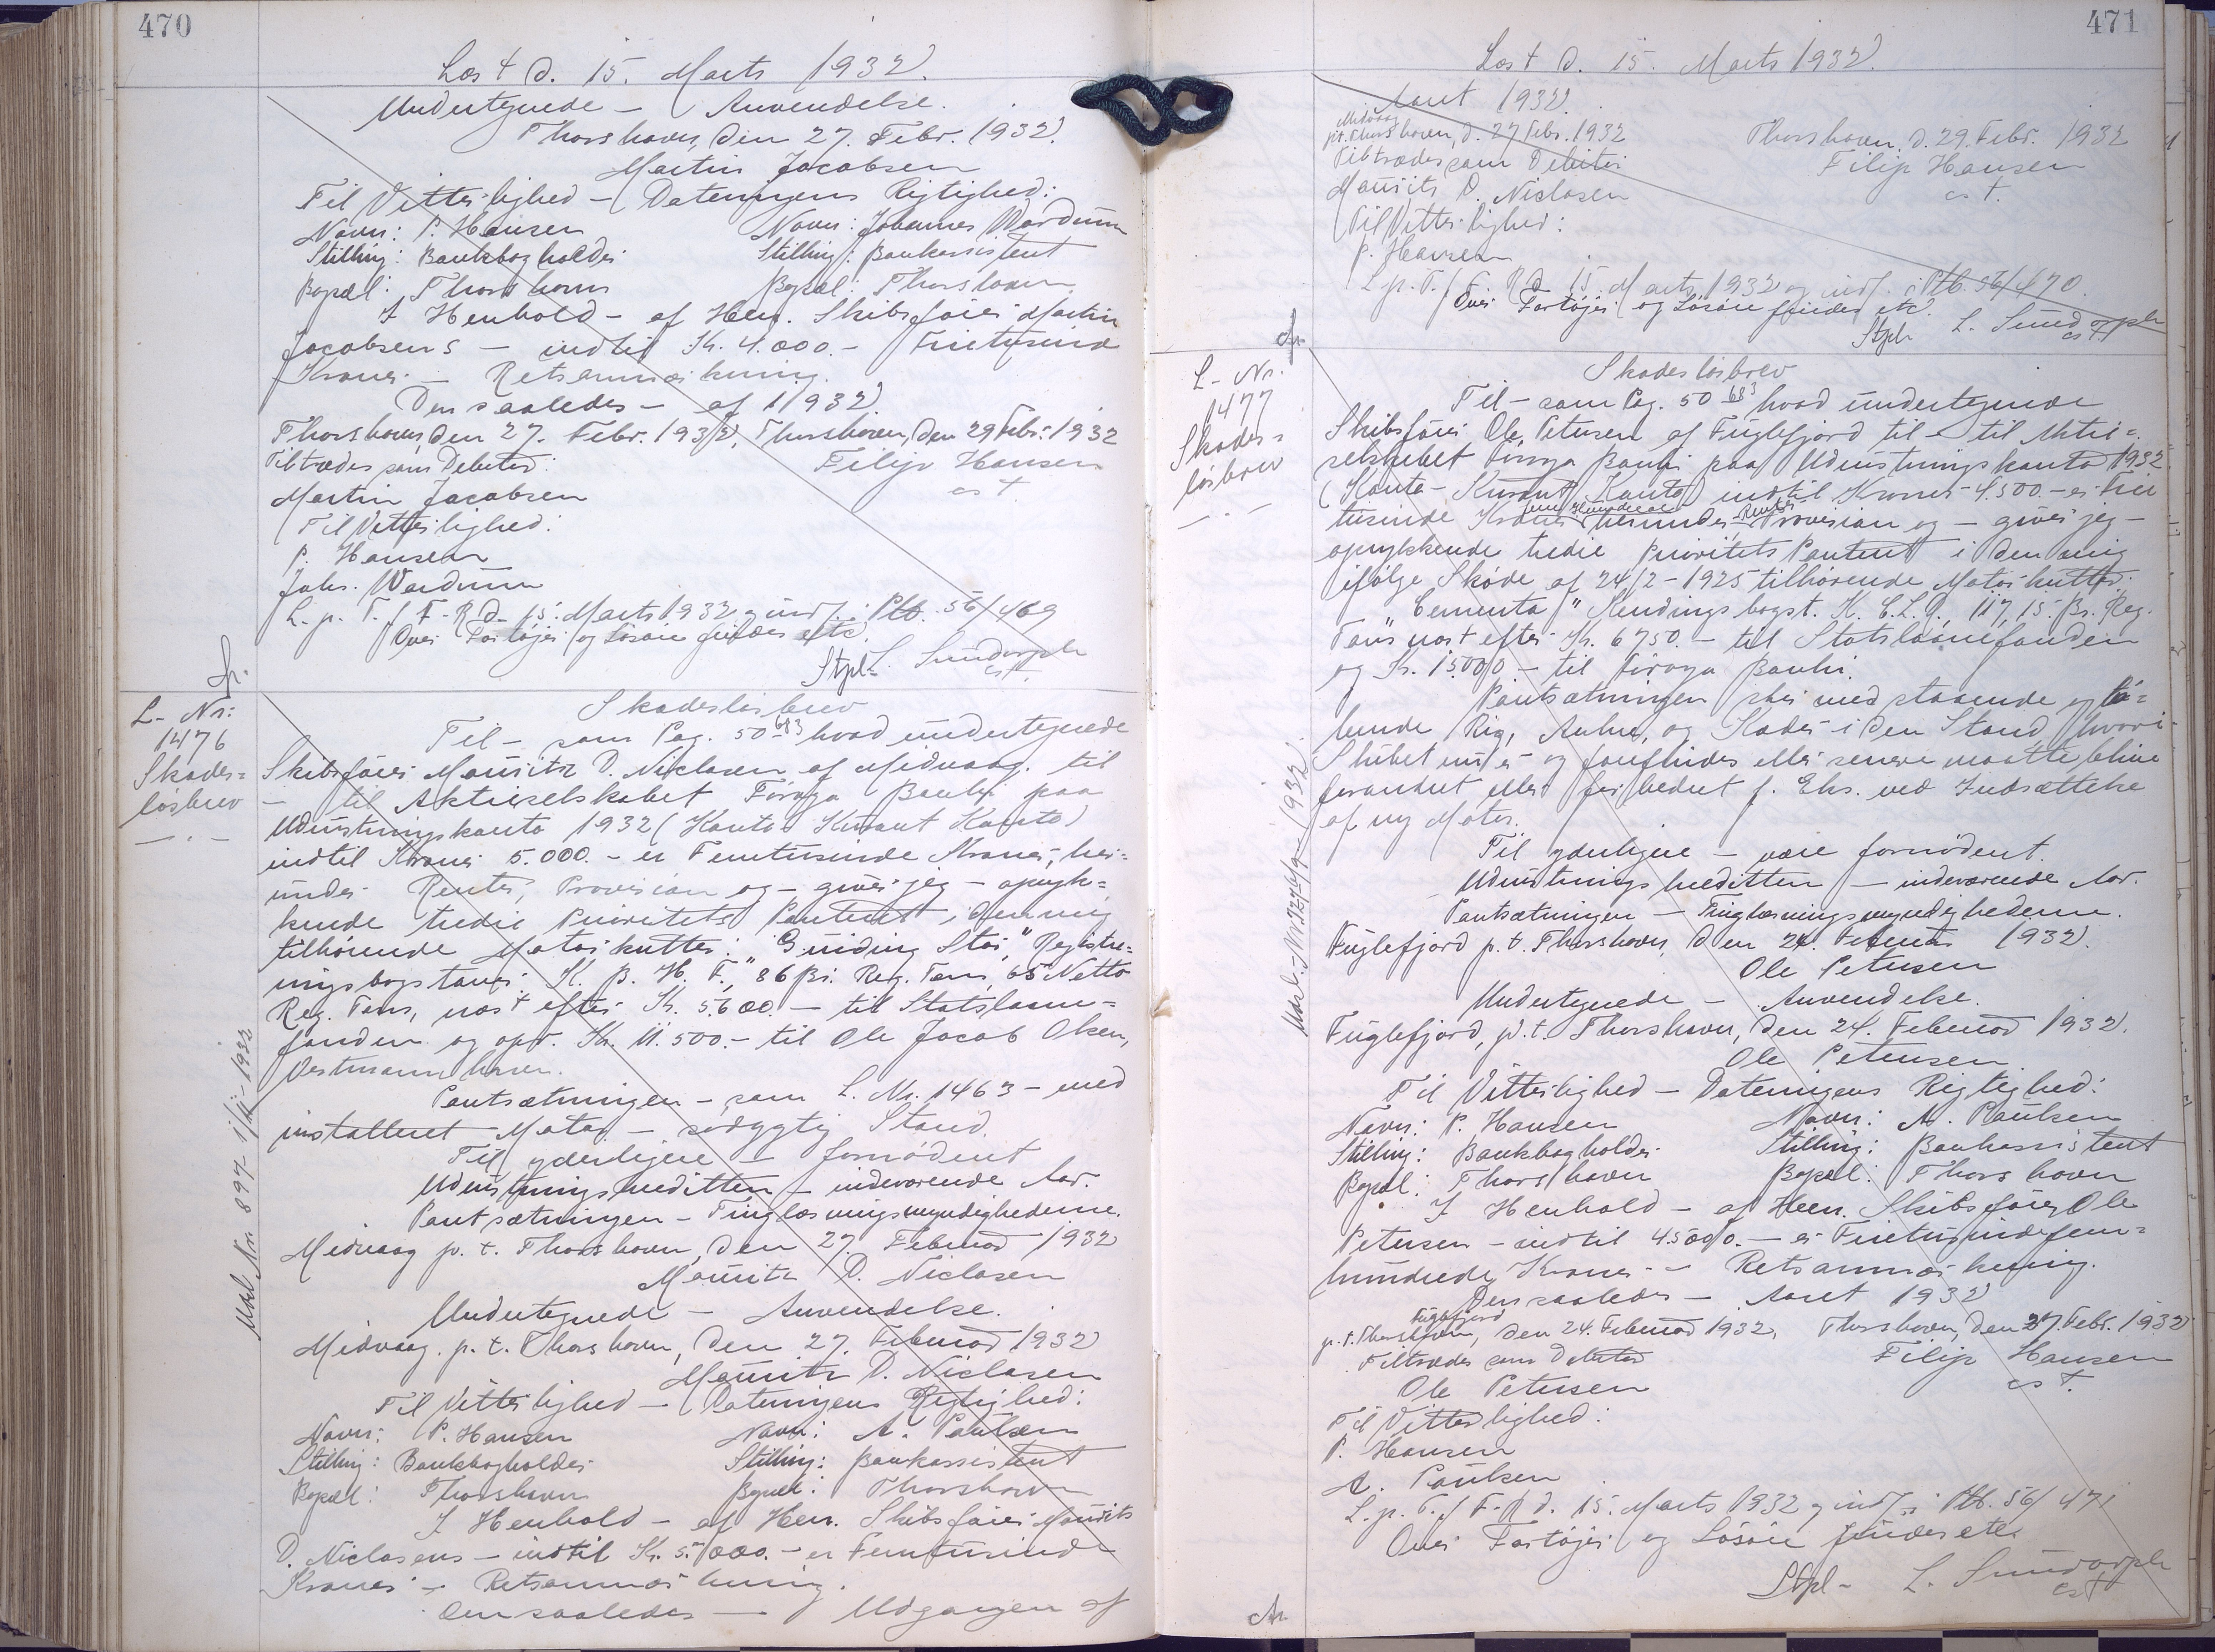 470
Læst d. 15. Marts 1932.
Undertegnede – Anvendelse.
Thorshavn, den 27. Febr. 1932.
Martin Jacobsen
Til Vitterlighed – Dateringens Rigtighed:
Navn: P. Hansen Navn: Johannes Wardum
Stilling: Bankbogholder Stilling: Bankassistent
Bopæl: Thorshavn Bopæl: Thorshavn
I Henhold – af Herr. Skibsfører Martin
Jacobsens – indtil Kr. 4.000.– Firetusinde
Kroner – Retsanmærkning.
Den saaledes – af 1932.
Thorshavn, den 27. Febr. 1932. Thorshavn, den 29 Febr. 1932
Tiltrædes som Debitor: Filip Hansen
Martin Jacobsen cst.
Til Vitterlighed:
P. Hansen
Johs. Wardum
L. p. T. f. F. R. d. 15. Marts 1932 og indf. i Ptb. 56/469
Over Fartøjer og Løsøre findes etc.
Stpl. L. Sundorph
cst.
L. Nr.
1476
Skades=
løsbrev
– . –
Skadesløsbrev
Til – som Pag. 50 – 683 hvad undertegnede
Skibsfører Mouritz D. Niclasen af Midvaag til
– til Aktieselskabet Føroya Banki paa
Udrustningskonto 1932 (Konto Kurant Konto)
indtil Kroner 5.000.– er Femtusinde Kroner, her=
under Renter, Provision og – giver jeg – opryk=
kende tredie Prioritets Panteret i den mig
tilhørende Motorkutter: "Guiding Star," Registre=
ringsbogstaver K. B. H. F., 86 Br. Reg. Tons, 65 Netto
Reg. Tons, næst efter Kr. 5.600.– til Statslaane=
fonden og opr. Kr. 11.500.– til Ole Jacob Olsen,
Vestmannhavn.
Pantsætningen – som L. Nr. 1463 – med
installeret Motor – sødygtig Stand.
Til yderligere – fornødent
Udrustningskreditten – indeværende Aar.
Pantsætningen – Tinglæsningsmyndighederne.
Midvaag p. t. Thorshavn, den 27. Februar 1932
Mouritz D. Niclasen
Undertegnede – Anvendelse.
Midvaag. p. t. Thorshavn, den 27. Februar 1932
Mouritz D. Niclasen
Til Vitterlighed – Dateringens Rigtighed:
Navn: P. Hansen Navn: A. Paulsen
Stilling: Bankbogholder Stilling: Bankassistent
Bopæl: Thorshavn Bopæl: Thorshavn
I Henhold – af Herr. Skibsfører Mourits
D. Niclasens – indtil Kr. 5.000.– er Femtusinde
Kroner – Retsanmærkning.
Den saaledes – Udgangen af
Udsl. Nr. 897- 1/12-1932
471
Læst d. 15. Marts 1932.
Aaret 1932.
Midvaag
p.t. Thorshavn, d. 27 Febr. 1932 Thorshavn, d. 29. Febr. 1932
Tiltrædes som Debitor Filip Hansen
Mourits D. Niclasen cst.
Til Vitterlighed:
P. Hansen
L. p. T. f. F. R. d. 15. Marts 1932 og indf. i Ptb. 56/470.
Over Fartøjer og Løsøre findes etc.
Stpl. L. Sundorph
cst
L. Nr.
1477
Skades=
løsbrev
– . –
Skadesløsbrev
Til – som Pag. 50 683 hvad undertegnede
Skibsfører Ole Petersen af Fuglefjord til – til Aktie=
selskabet Føroya Banki paa Udrustningskonto 1932
(Konto-Kurant Konto) indtil Kroner 4.500.– er Fire
tusinde Kroner fem Hundrede herunder Renter Provision og – giver jeg –
oprykkende tredie Prioritets Panteret i den mig
ifølge Skøde af 24/2 – 1925 tilhørende Motorkutter
"Cementa" Kendingsbogst. K. C. L. Q., 117,15 Br. Reg.
Tons næst efter Kr. 6750.– til Statslaanefonden
og Kr. 15000.– til Føroya Banki.
Pantsætningen sker med staaende og lø=
bende Rig, Anker, og Kæder i den Stand hvori
Skibet nu er og forefindes eller senere maatte blive
forandret eller forbedret f. Eks. ved Indsættelse
af ny Motor.
Til yderligere – være fornødent.
Udrustningskreditten – indeværende Aar.
Pantsætningen – Tinglæsningsmyndighederne.
Fuglefjord p. t. Thorshavn, den 24. Februar 1932.
Ole Petersen
Undertegnede – Anvendelse.
Fuglefjord, p. t. Thorshavn, den 24. Februar 1932.
Ole Petersen
Til Vitterlighed – Dateringens Rigtighed:
Navn: P. Hansen Navn: A. Paulsen
Stilling: Bankbogholder Stilling: Bankassistent
Bopæl: Thorshavn Bopæl: Thorshavn
I Henhold – af Herr. Skibsfører Ole
Petersen – indtil 4500.– er Firetusindefem=
hundrede Kroner – Retsanmærkning.
Den saaledes – Aaret 1932
Fuglefjord
p. t. Thorshavn, den 24. Februar 1932, Thorshavn, den 27. Febr. 1932
Tiltrædes som Debitor Filip Hansen
Ole Petersen cst.
Til Vitterlighed:
P. Hansen
A. Paulsen
L. p. T. f. F. R d. 15. Marts 1932 og indf. i Ptb. 56/471
Over Fartøjer og Løsøre findes etc.
Stpl – L. Sundorph
cst